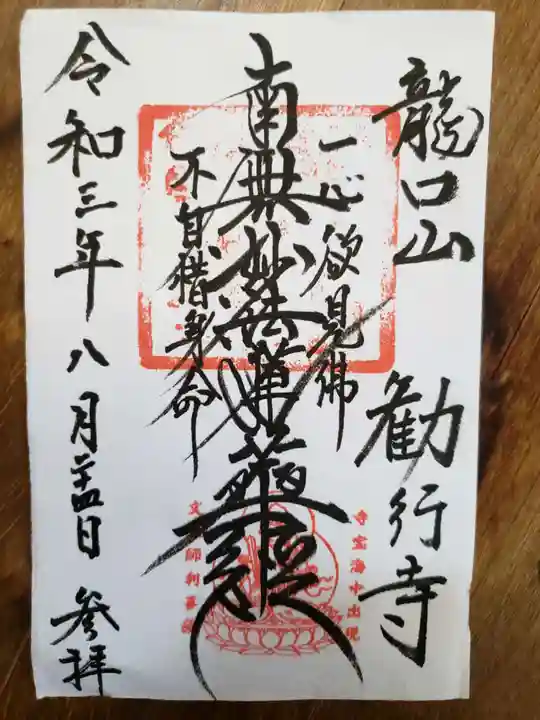 龍口山 勧行寺
一心欲見佛
南無妙法蓮華経
不自惜身命
寺宝海中出現
文殊師利菩薩
令和三年八月二十四日 参拝